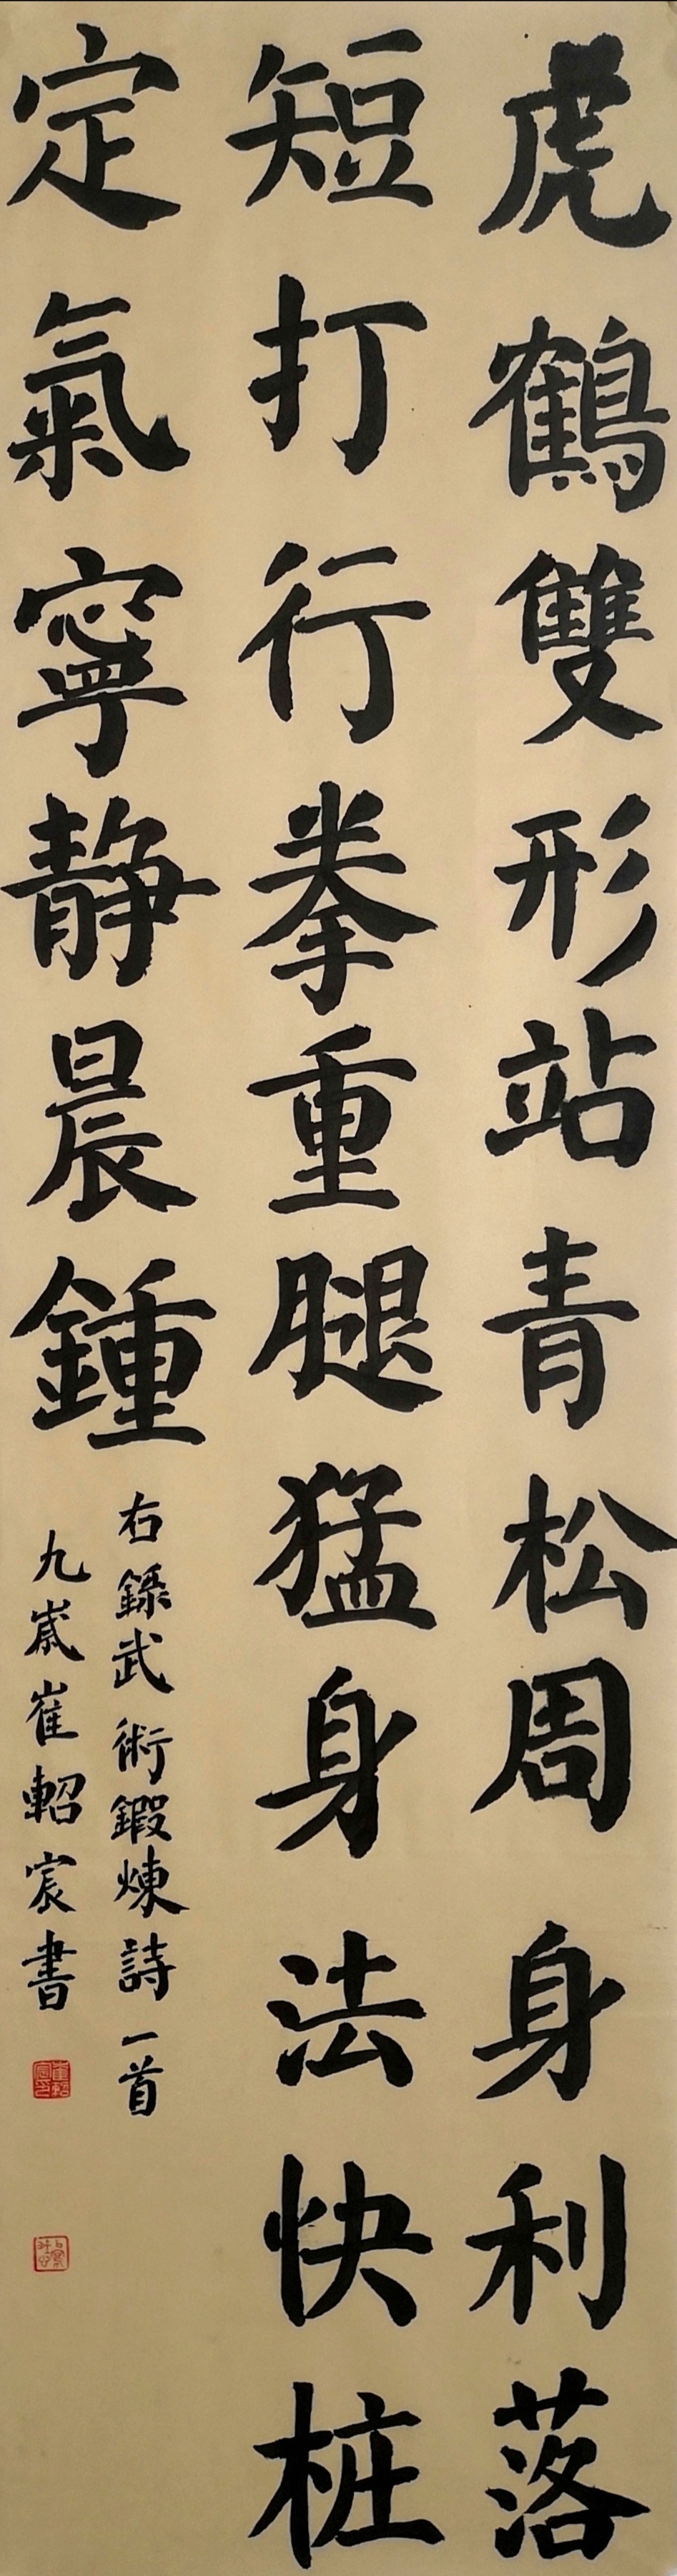 虎鶴雙形站青松周身利落
短打行拳重腿猛身法快桩
定氣寧静晨鍾
右録武術鍛煉詩一首
九歲崔軺宸書